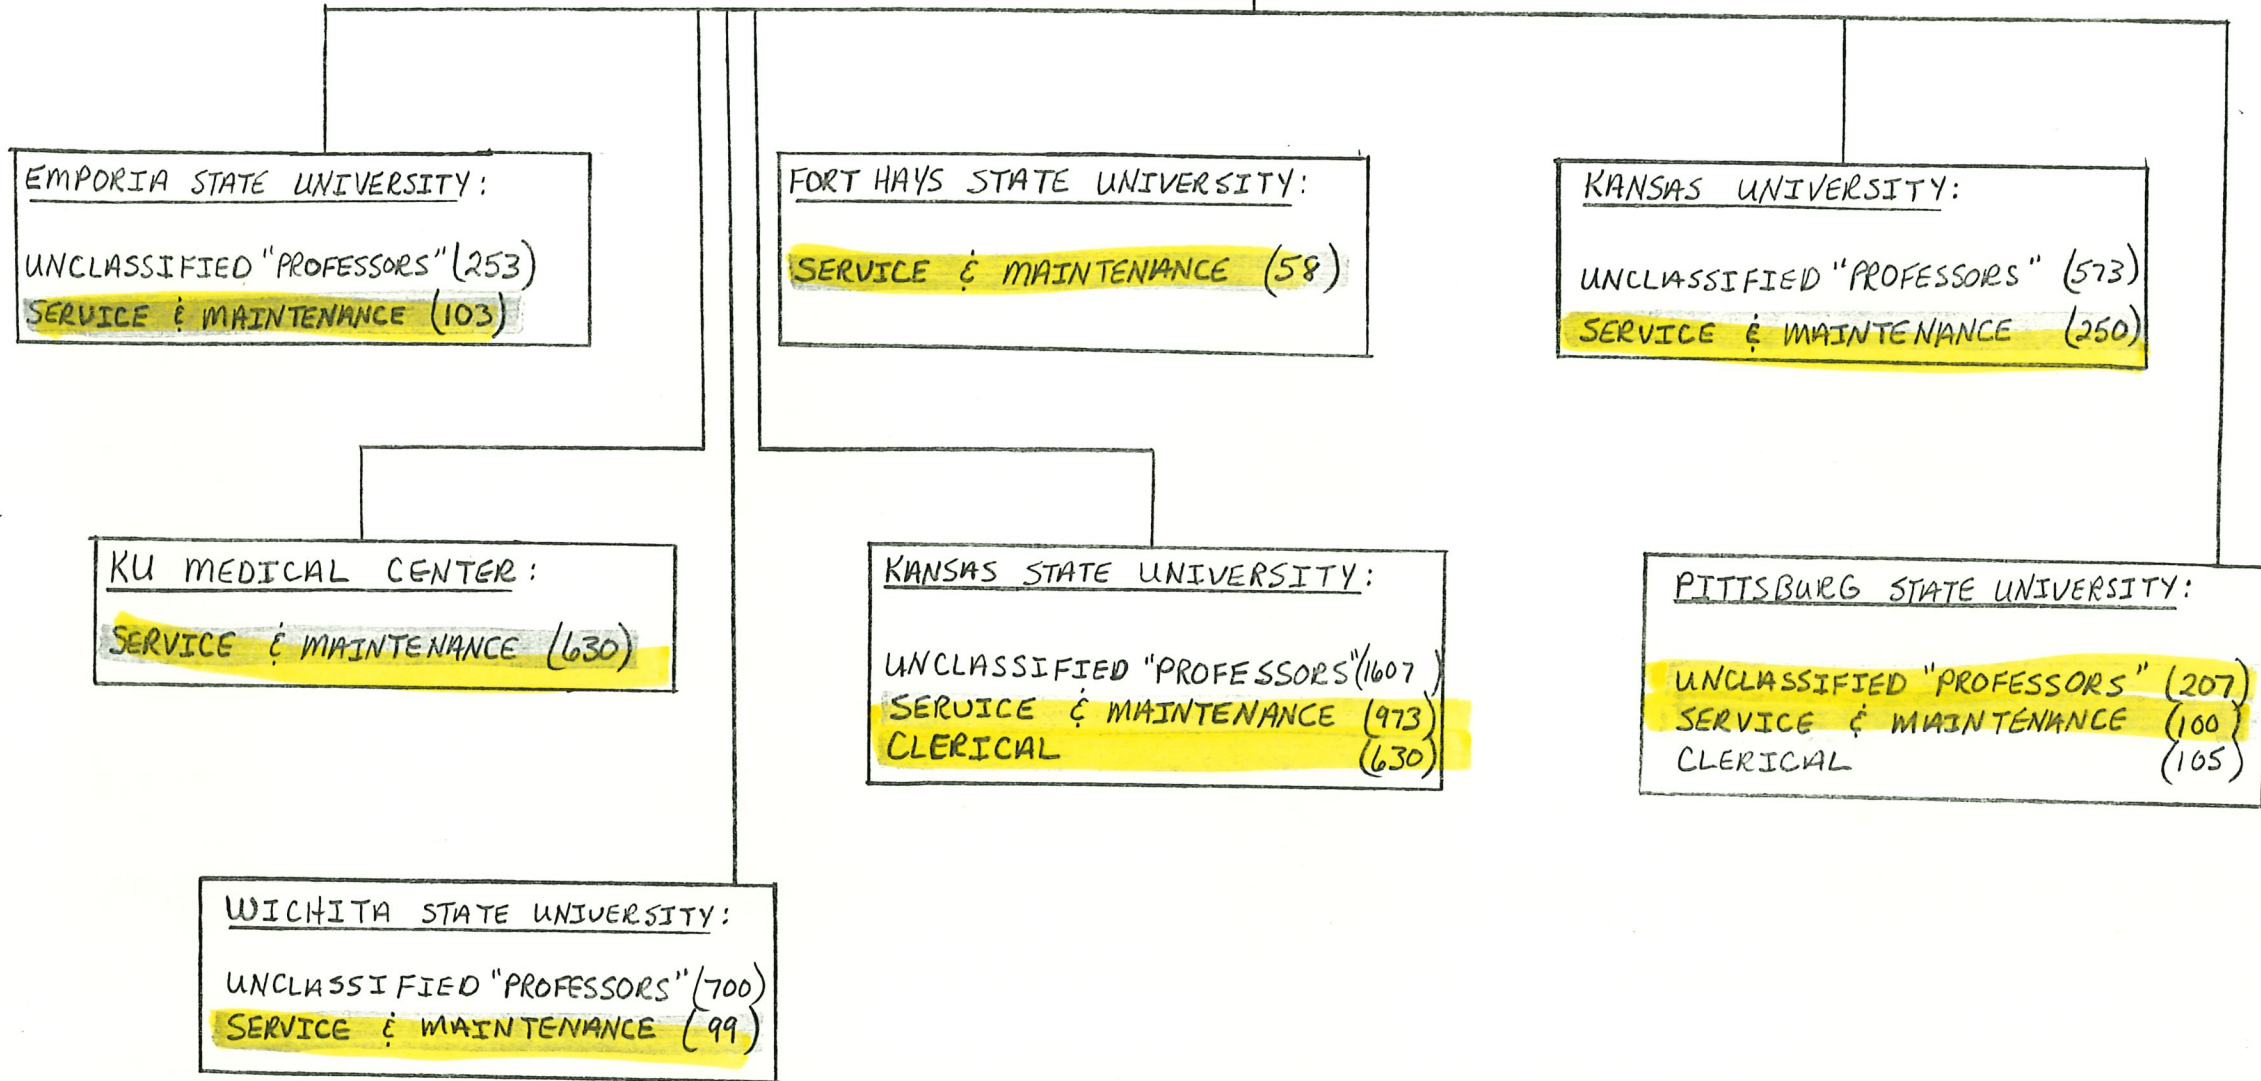 EMPORIA STATE UNIVERSITY:
UNCLASSIFIED "PROFESSORS" (253)
SERVICE & MAINTENANCE (103)
FORT HAYS STATE UNIVERSITY:
SERVICE & MAINTENANCE (58)
KANSAS UNIVERSITY:
UNCLASSIFIED "PROFESSORS" (573)
SERVICE & MAINTENANCE (250)
KU MEDICAL CENTER:
SERVICE & MAINTENANCE (630)
KANSAS STATE UNIVERSITY:
UNCLASSIFIED "PROFESSORS" (1607)
SERVICE & MAINTENANCE (973)
CLERICAL (630)
PITTSBURG STATE UNIVERSITY:
UNCLASSIFIED "PROFESSORS" (207)
SERVICE & MAINTENANCE (100)
CLERICAL (105)
WICHITA STATE UNIVERSITY:
UNCLASSIFIED "PROFESSORS" (700)
SERVICE & MAINTENANCE (99)